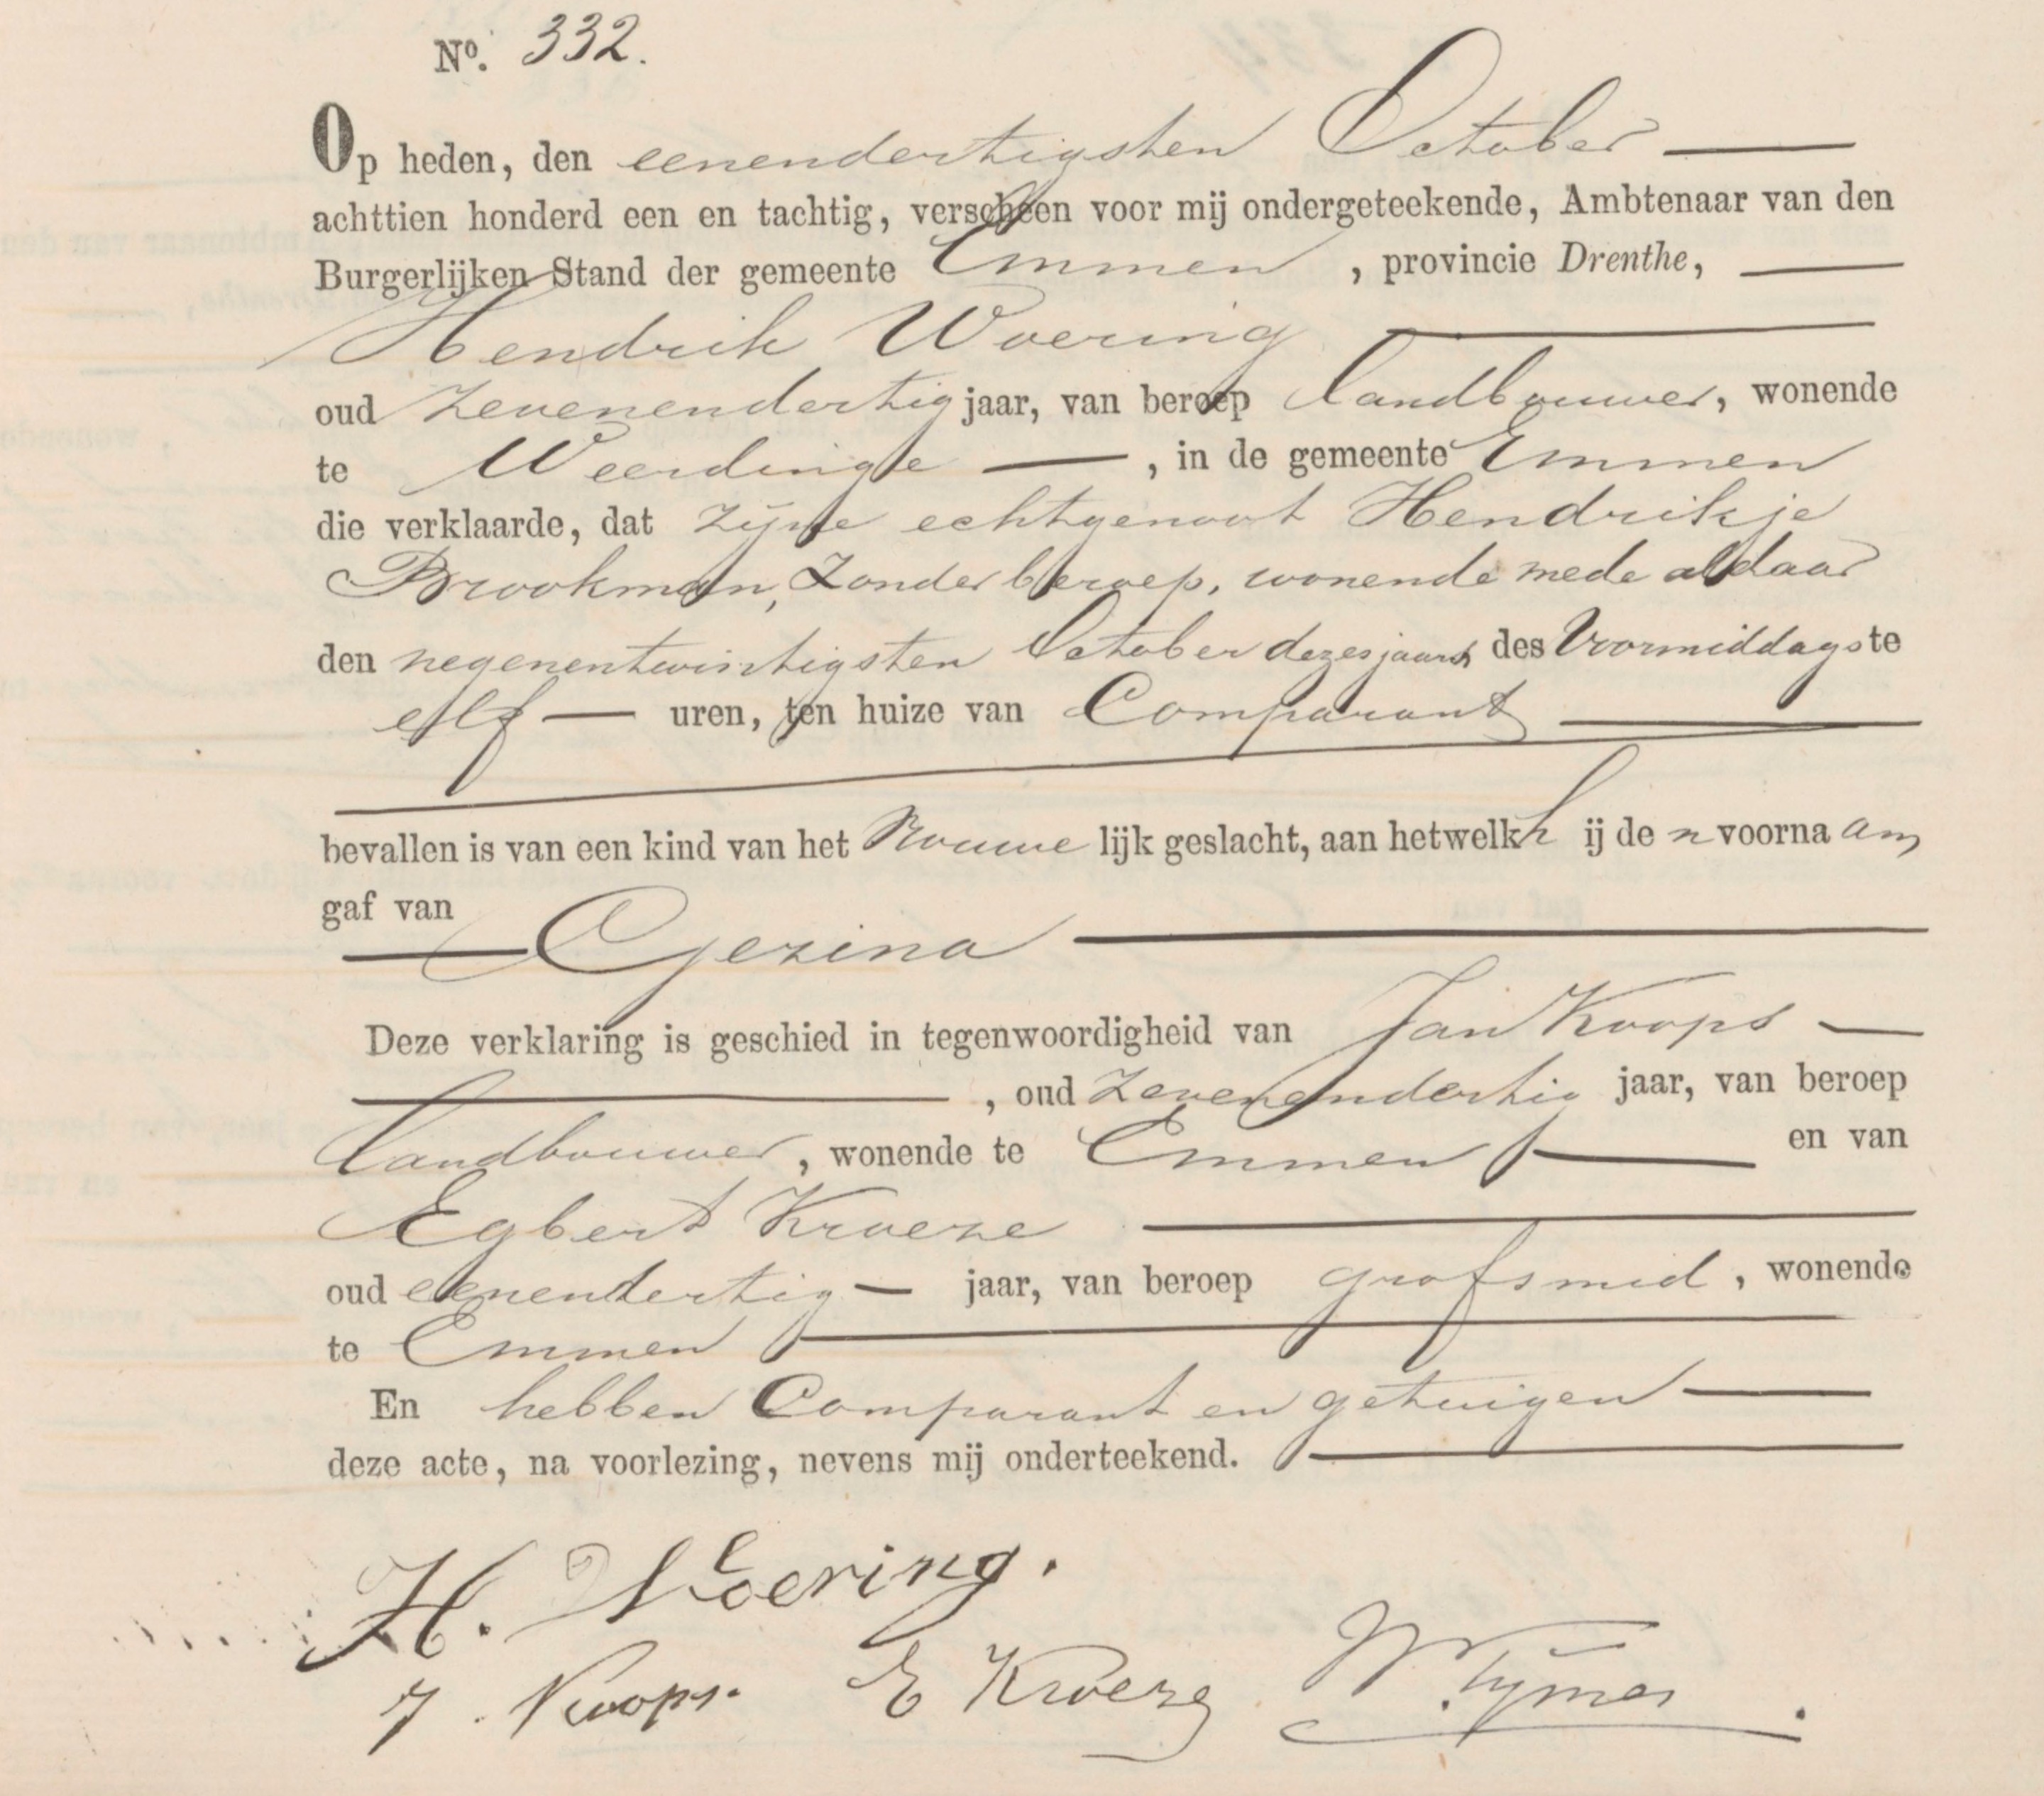 No. 332.
Op heden, den eenendertigsten October
achttien honderd een en tachtig, verscheen voor mij ondergeteekende, Ambtenaar van den
Burgerlijken Stand der gemeente Emmen, provincie Drenthe,
Hendrik Woering
oud zevenendertig jaar, van beroep landbouwer, wonende
te Weerdinge, in de gemeente Emmen
die verklaarde, dat zijne echtgenoot Hendrikje
Brookman, zonder beroep, wonende mede aldaar
den negenentwintigsten October dezes jaars des Voormiddags te
elf uren, ten huize van Comparant
bevallen is van een kind van het vrouwelijk geslacht, aan hetwelk hij den voornaam
gaf van
Gezina
Deze verklaring is geschied in tegenwoordigheid van Jan Koops
, oud zevenendertig jaar, van beroep
landbouwer, wonende te Emmen en van
Egbert Kroeze
oud eenendertig jaar, van beroep grofsmid, wonende
te Emmen
En hebben Comparant en getuigen
deze acte, na voorlezing, nevens mij onderteekend.
H. Woering.
J. Koops. E Kroeze W. Tijmes.